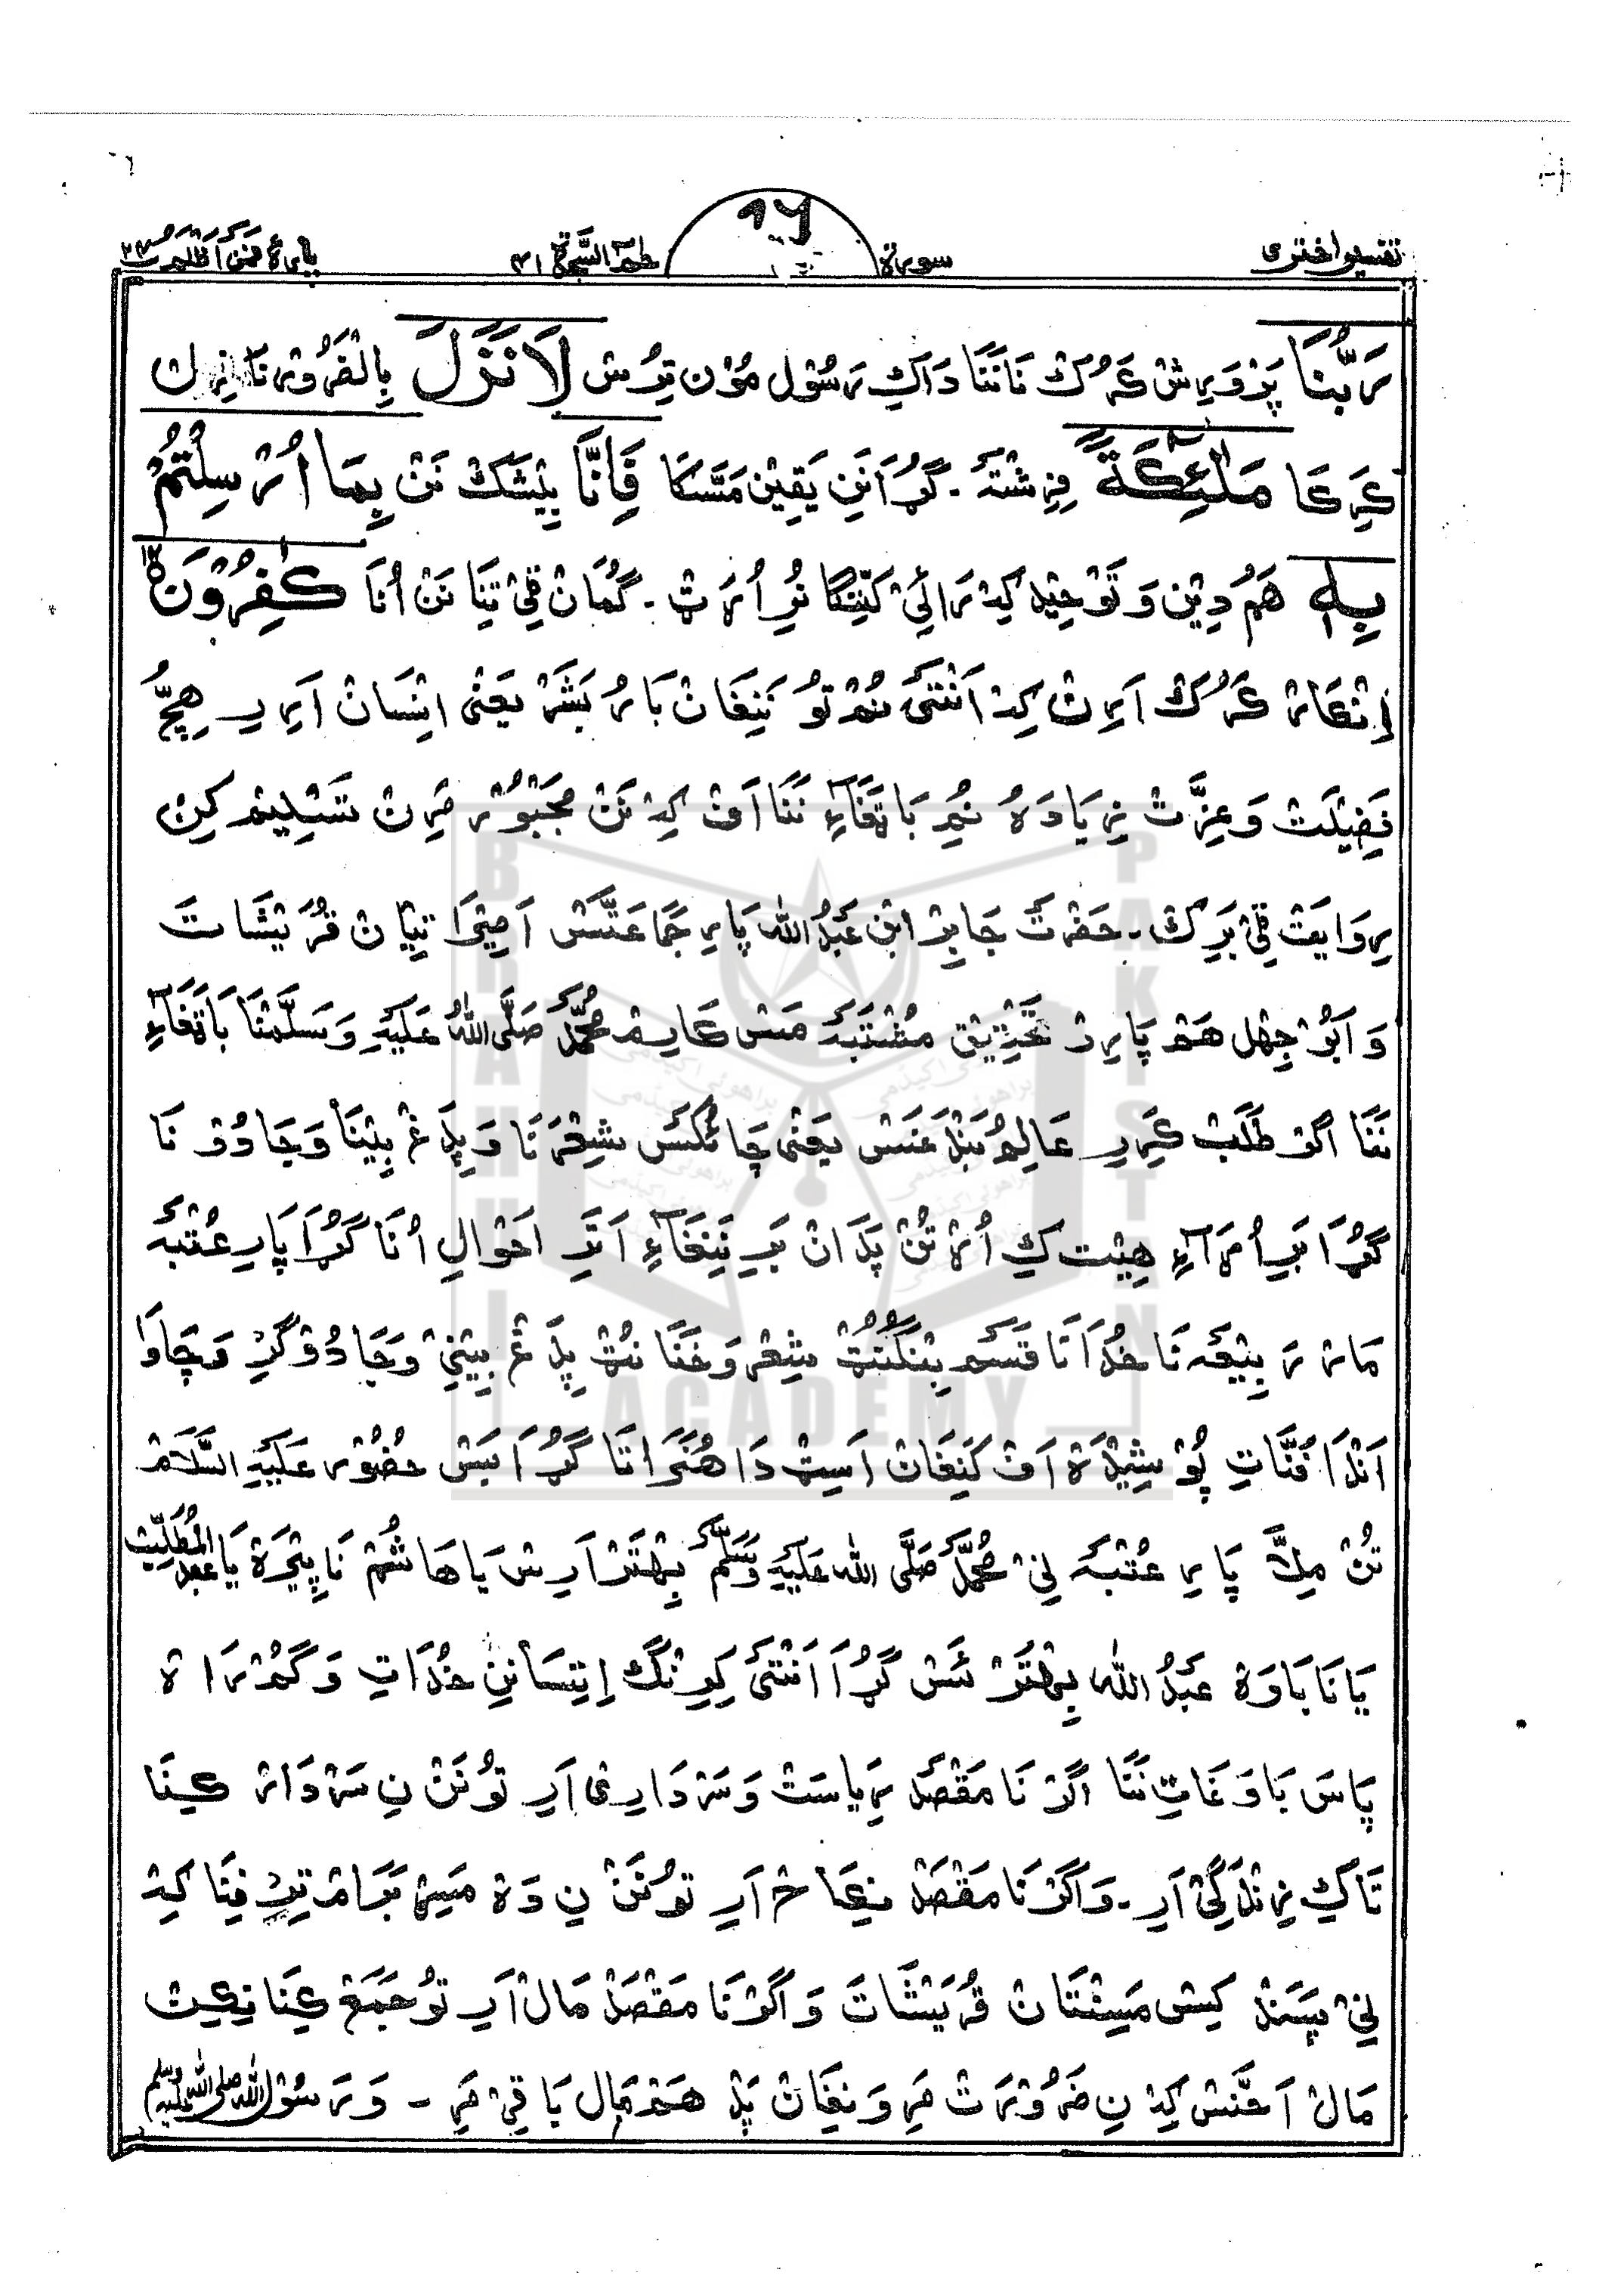 تفسیر اختری سورة ١٦ حٰمٓ السَّجدة ٤١ پارۀ فَمَنۡ اَظۡلَمُ ٢٤
رَبُّنَا پَرۡوَرِشۡ کَرُکۡ نَا نَنَا دَاکِ رَسُوۡل مُوۡن تِرُس لَاَنۡزَلَ بِالۡضَرُوۡر
کَرِکَا مَلٰٓئِکَةً فِرِشۡتَہ ۔ گُڑَا نَنِ یَقِیۡن مَسَّکَا فَاِنَّا بِیۡشَکۡ نَنۡ بِمَا اُرۡسِلۡتُمۡ
بِہٖ هَمُ دِیۡن وَ تَوۡحِیۡد کِہ رَائِیۡ کَنِّنۡگَا نُم اُرَتۡ ۔ گُمَانۡ قِیۡ تِنَا نَنۡ اُنَا کٰفِرُوۡنَ
اِنۡکَارۡ کَرُکۡ اَرِنۡ کِہ اَنۡتَئَ نُمۡ تَوُ نَنِغَانۡ بَارُ بَشَرۡ یَعۡنٖی اِنۡسَانۡ اَرِرِ هِچُّ
فَضِیۡلَتۡ وَ عِزَّتۡ زِیَادَہ نُمۡ بَاتَغَاءِ نَنَا اَفۡ کِہ نَنۡ مَجۡبُوۡر مَرِنۡ تَسۡلِیۡم کِنۡ
رِوَایَتۡ قِیۡ بَرِکۡ ۔ حَضۡرَتۡ جَابِرۡ ابۡن عَبۡدُ اللّٰہ پَارِ جَمَاعَتَّسۡ اَمِیۡرَا تِیَانۡ قُرَیۡشَاتَ
وَ اَبُوۡ جِهۡل هَمۡ پَارِرۡ تَحۡقِیۡق مُشۡتَبَہ مَسۡ کَارِمۡ مُحَمَّدۡ صَلَّی اللّٰہُ عَلَیۡہِ وَسَلَّمۡنَا بَاتَغَاءِ
نَنَا اگَرۡ طَلَبۡ کَرِرِ عَالِمُ بَنۡدَغَسۡ یَعۡنٖی چَائُکَسۡ شِعۡرۡنَا وَ پِلَّ غۡ بِیۡنَا وَ جَادُوۡ نَا
گُڑَا بَرِ اُرَآءِ هِیۡت کِ اُرۡتُنۡ پَدَانۡ بَرِ نَنِغَاءِ اَتَرِ اَحۡوَالِ اُنَا گُڑَا پَارِ عُتۡبَہ
مَارۡ رَبِیۡعَہ نَا خُدَانَا قَسَم بِنۡگُنُٹۡ شِعۡرۡ وَ خَنَا نُٹۡ پِلَّ غۡ بِیۡنِیۡ وَ جَادُوۡ گَرِیۡ وَ چَاوَا
اَنۡدَا فَنَّاتِ پُوۡشِیۡدَہ اَفۡ کَنِغَانۡ اَسِٹۡ دَا هُنَرَاتَا گُڑَا بَسۡ حُضُوۡر عَلَیۡہِ السَّلَامۡ
تُنۡ مِلَّا پَارِ عُتۡبَہ نِیۡ مُحَمَّدۡ صَلَّی اللّٰہ عَلَیۡہِ وَسَلَّمۡ بِهۡتَرۡ اَرِسۡ یَا هَاشُمۡ نَا پِیۡرَہ یَا عَبۡدُ الۡمُطَّلِبۡ
یَا نَا بَاوَہ عَبۡدُ اللّٰہ بِهۡتَرۡ ئَسۡ گُڑَا اَنۡتَئَ کِرِنۡگ اِیۡتِسَا نِنِ خُدَاتِ وَ گُمۡرَاہ
پَاسَ بَاوَغَاتِ نَنَا اگَرۡ نَا مَقۡصَدۡ رِیَاسَتۡ وَ سَرۡدَارِی اَرِ تَوُ نَنۡ نِ سَرۡدَارۡ کِنَا
تَاکِ زِنۡدَگِیۡ اَرِ ۔ وَ اگَرۡ نَا مَقۡصَدۡ نِکَاحۡ اَرِ تَوُ نَنۡ نِ دَہ مَسِڑ بَرَامۡ تِرِفِنَا کِہ
نِیۡ پَسَنۡد کِسۡ مَسِنۡتَانۡ قُرَیۡشَاتَ وَ اگَرۡ نَا مَقۡصَدۡ مَالۡ اَرِ تَوُ جَمَعۡ کِنَا نِکِنۡ
مَالۡ اَخَّسۡ کِہ نِ ضَرُوۡرَتۡ مَرِ وَ نِغَانۡ پَدۡ هَمۡ مَال بَاقِیۡ مَرِ ۔ وَ رَسُوۡلُ اللّٰہ صلی اللّٰہ علیہ وسلم
BRAHUI ACADEMY PAKISTAN